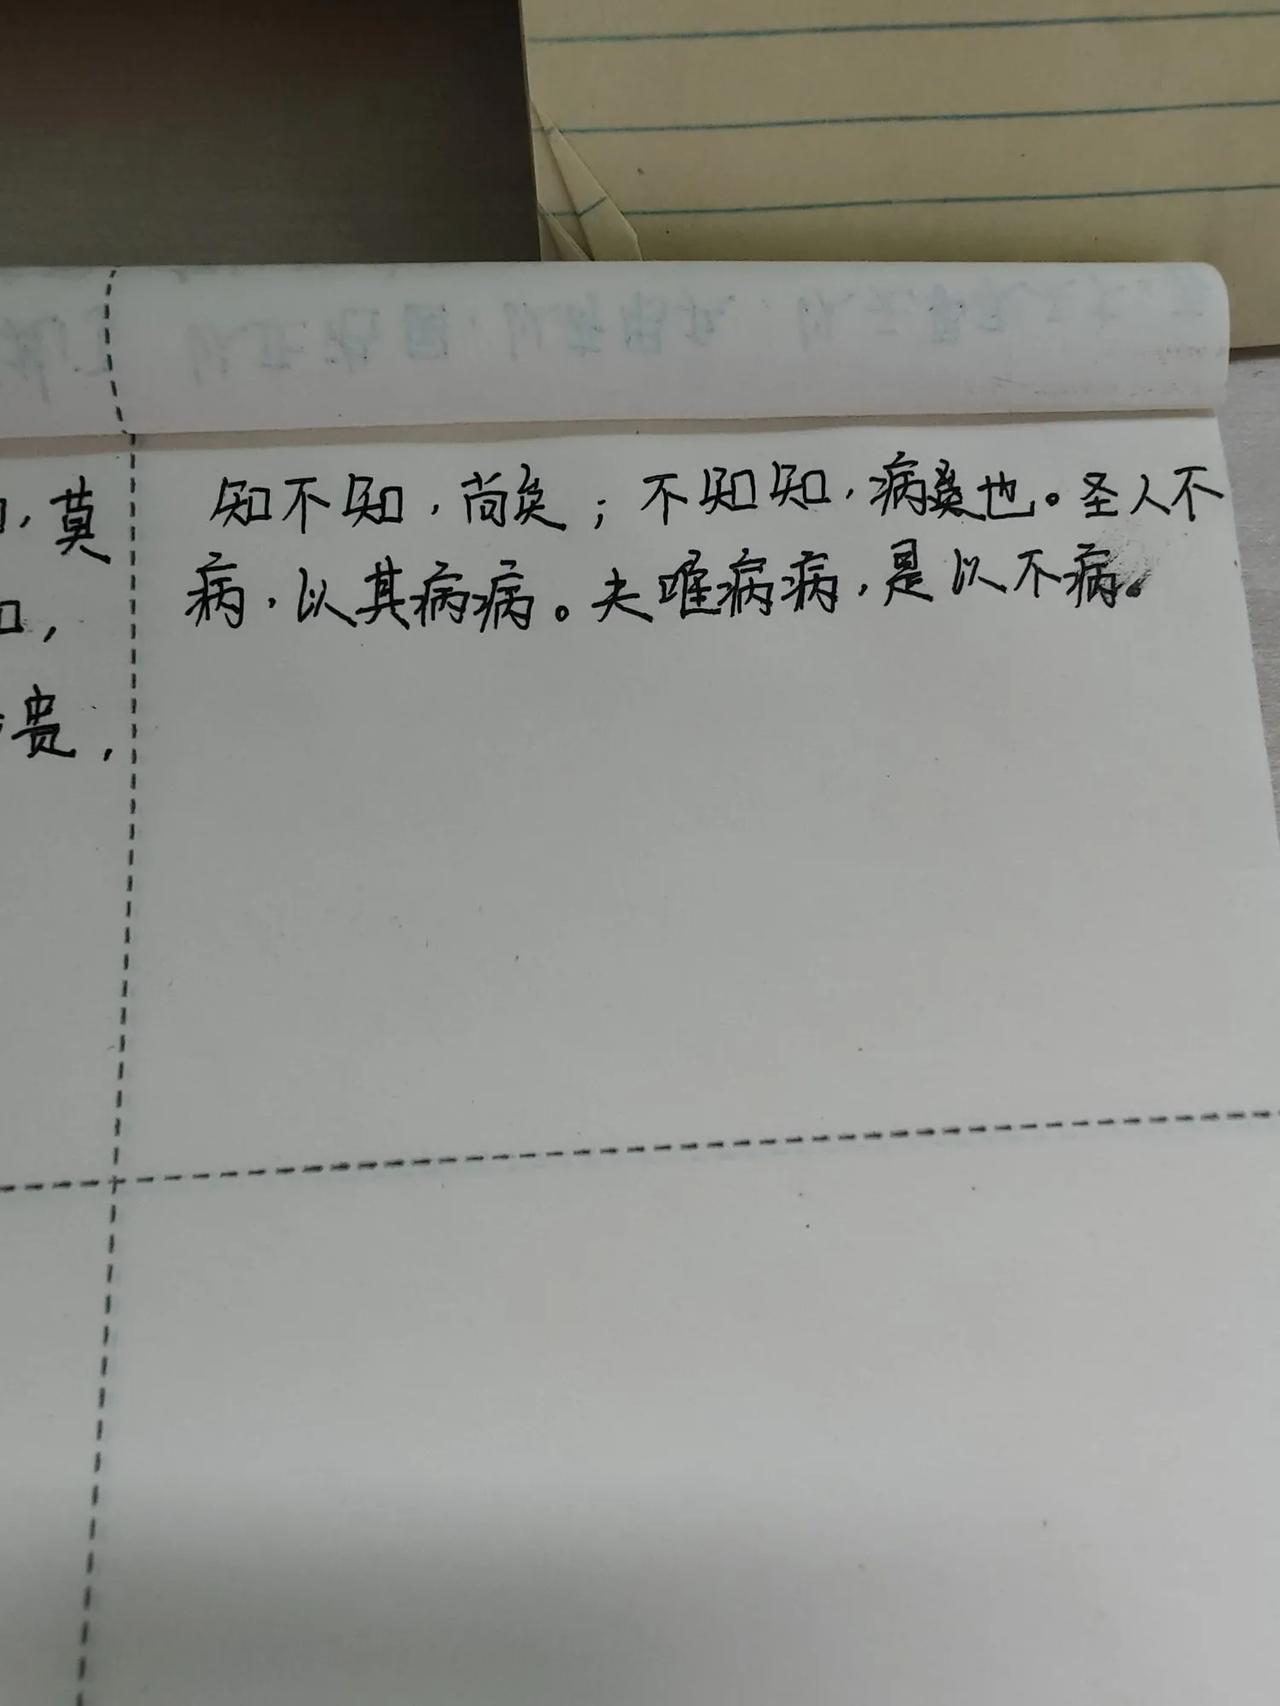 知不知，尚矣；不知知，病也。圣人不
病，以其病病。夫唯病病，是以不病。
莫
贵，